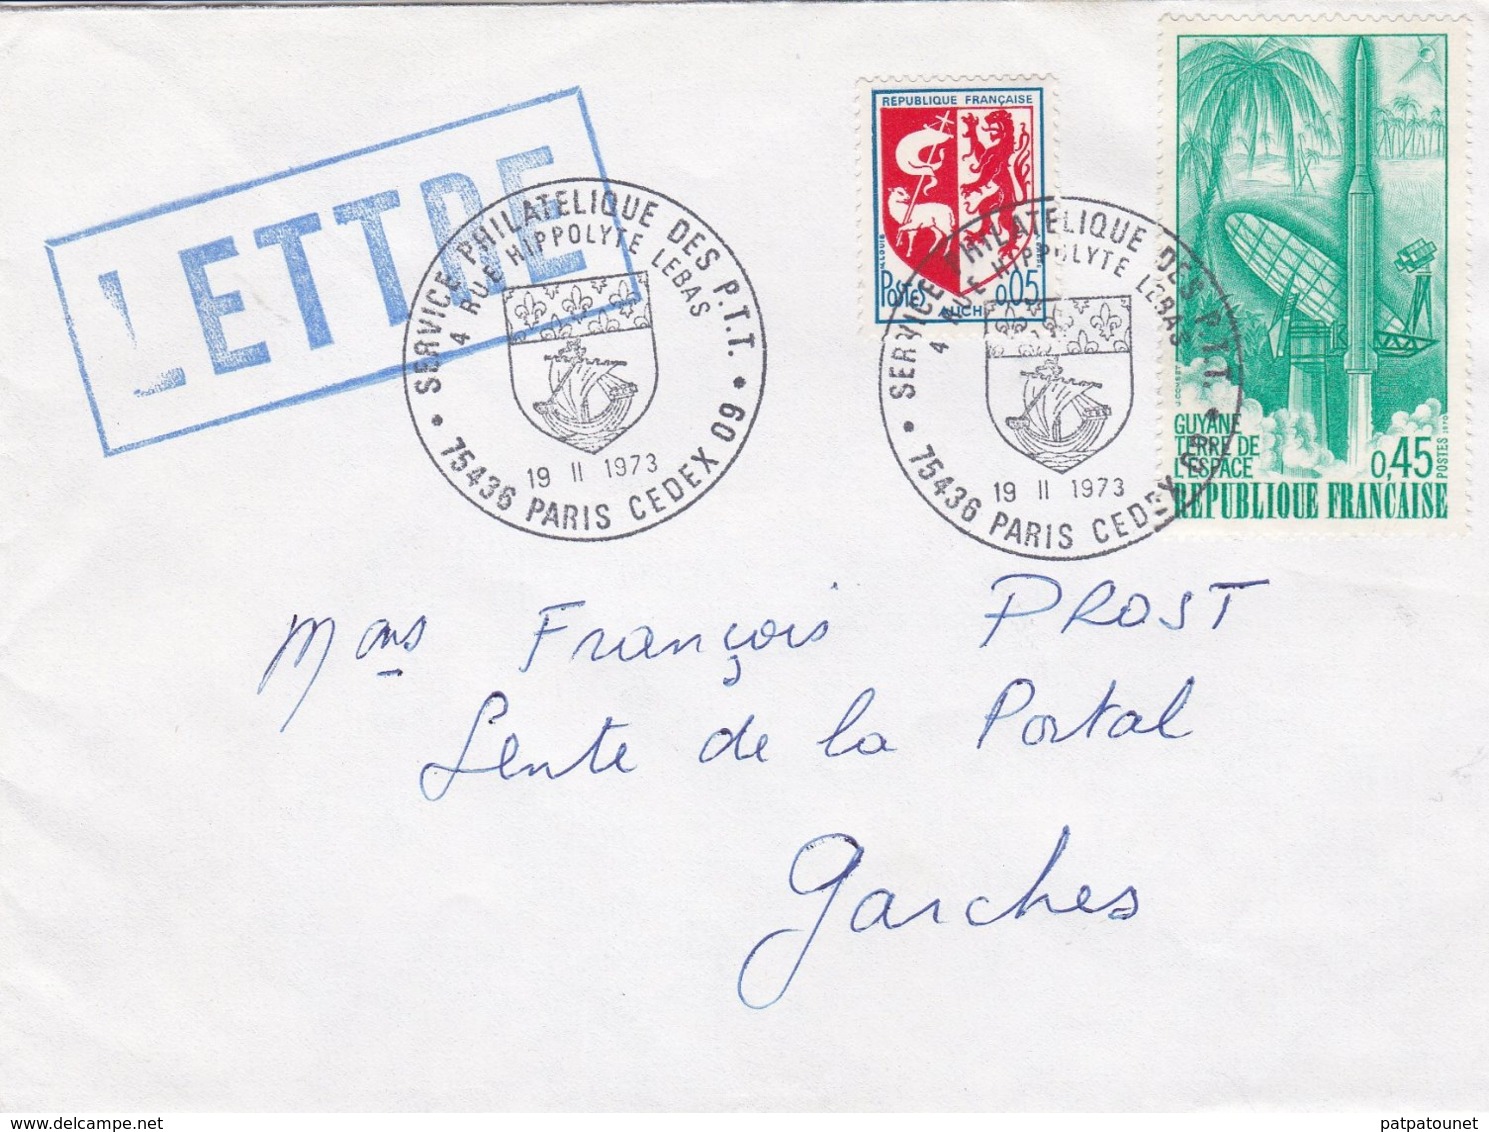 LETTRE
SERVICE PHILATELIQUE DES P.T.T.
4 RUE HIPPOLYTE LEBAS
19 II 1973
75436 PARIS CEDEX 09
REPUBLIQUE FRANÇAISE
Postes 0,05
AUCH
SERVICE PHILATELIQUE DES P.T.T.
4 RUE HIPPOLYTE LEBAS
19 II 1973
75436 PARIS CEDEX 09
GUYANE
TERRE DE
L'ESPACE
0,45
POSTES 1970
REPUBLIQUE FRANÇAISE
Mons François PROST
Sente de la Portal
Garches
delcampe.net
patpatounet